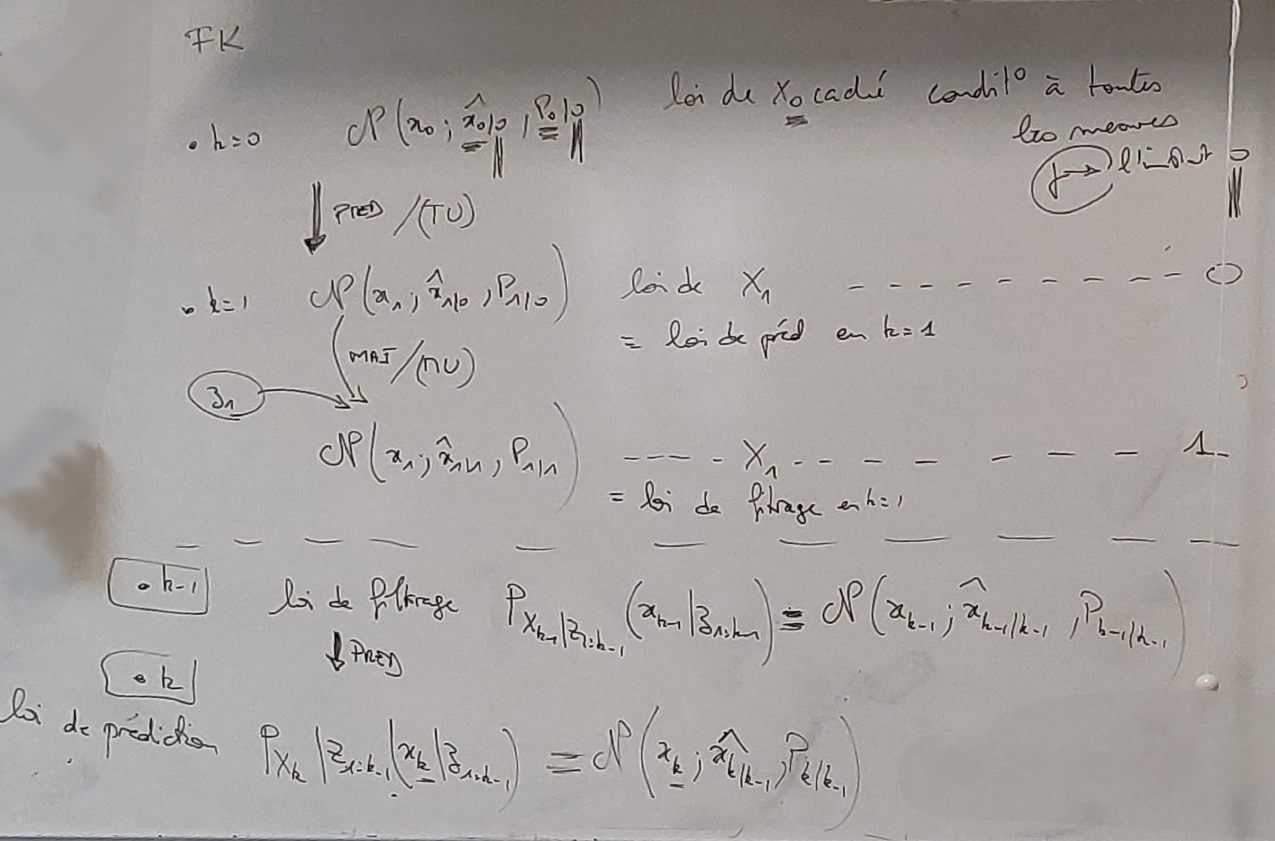 FK
• k=0 𝒩(x₀; x̂₀|₀, P₀|₀) loi de X₀ caché condit° à toutes
les mesures
j→ l'instant 0
↓ PRED /(TU)
• k=1 𝒩(x₁; x̂₁|₀, P₁|₀) loi de X₁ – – – – – – – – – 0
= loi de préd en k=1
MAJ/(MU)
z₁ →
𝒩(x₁; x̂₁|₁, P₁|₁) – – – – X₁ – – – – – – – 1
= loi de filtrage en k=1
• k-1 loi de filtrage P_{X_{k-1}|Z_{1:k-1}}(x_{k-1}|z_{1:k-1}) = 𝒩(x_{k-1}; x̂_{k-1|k-1}, P_{k-1|k-1})
↓ PRED
• k
loi de prédiction P_{X_k|Z_{1:k-1}}(x_k|z_{1:k-1}) = 𝒩(x_k; x̂_{k|k-1}, P_{k|k-1})